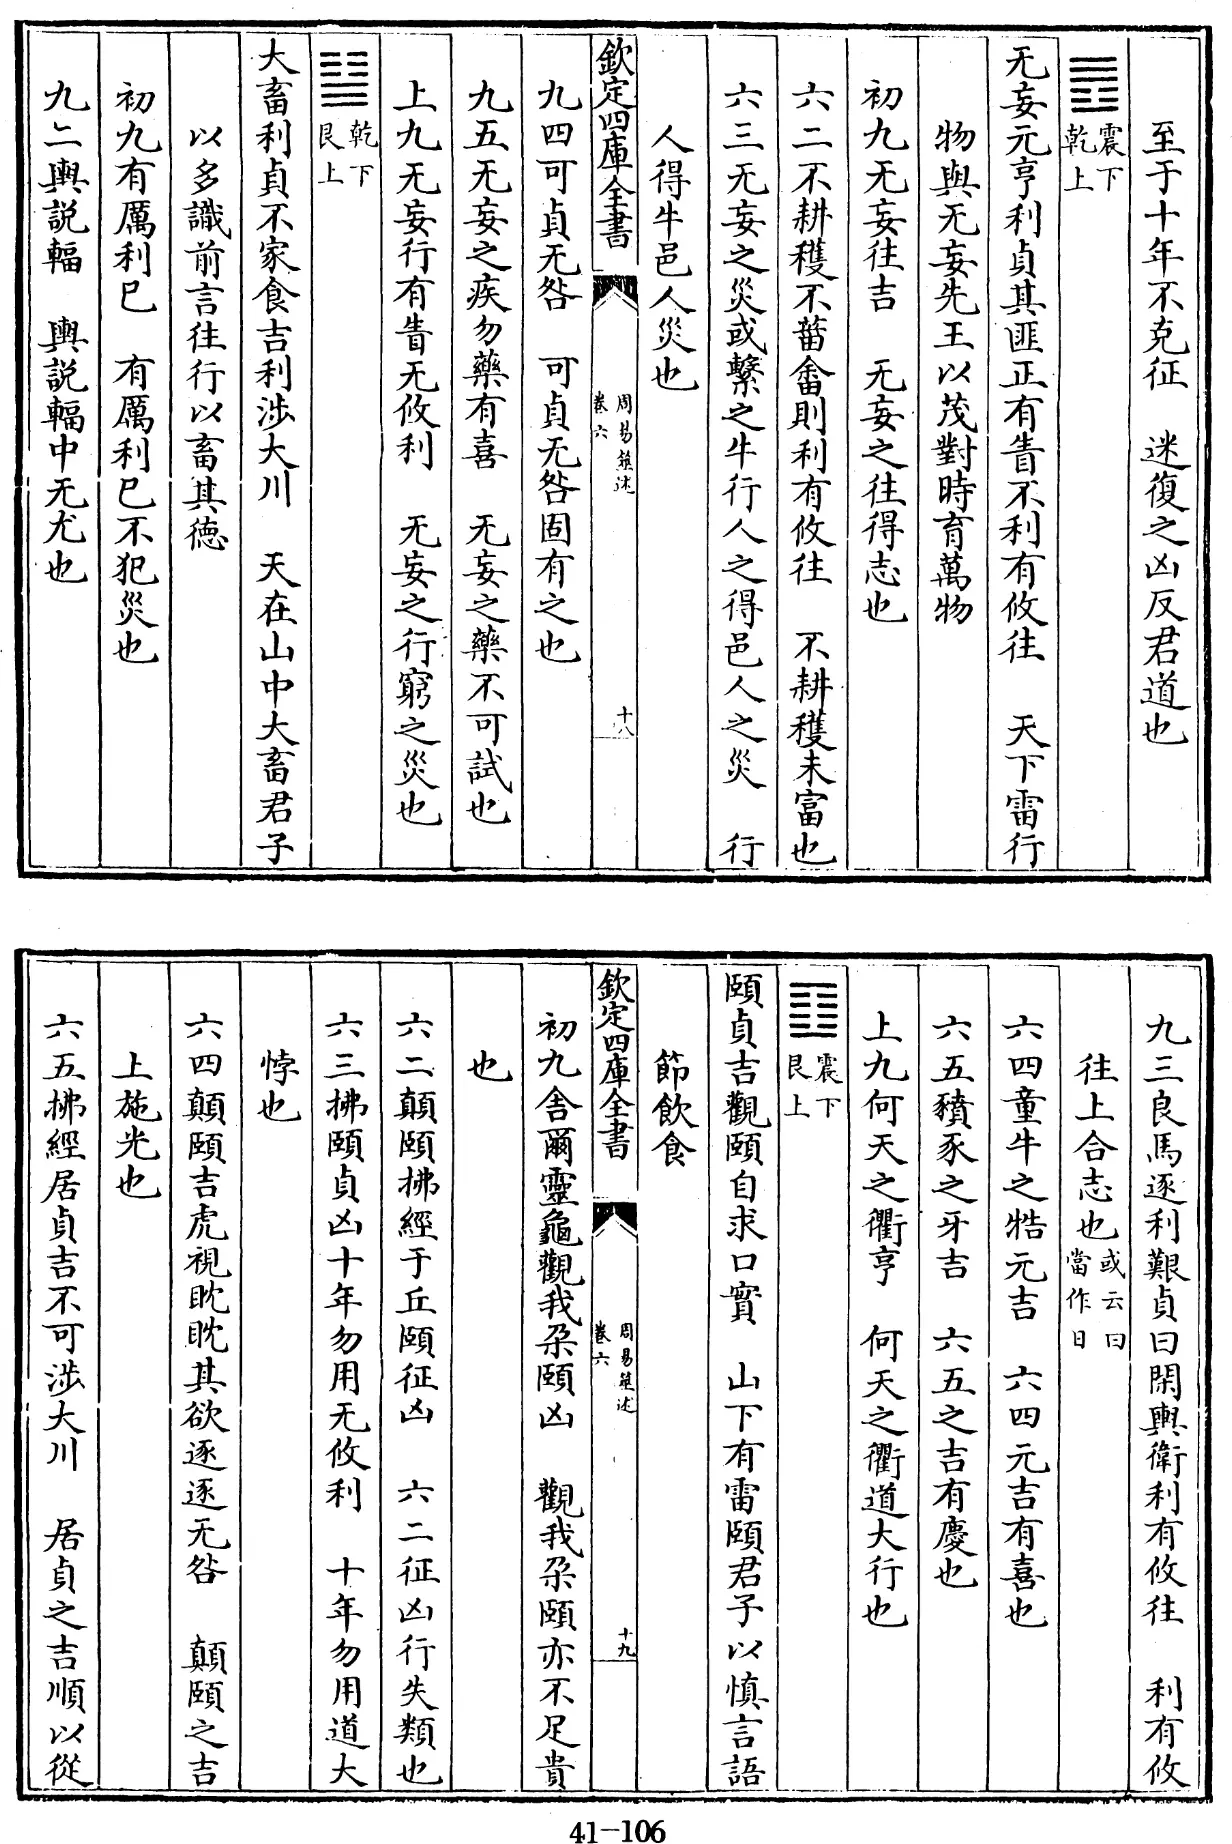 至于十年不克征　迷復之凶反君道也
䷘震下乾上
无妄元亨利貞其匪正有眚不利有攸往　天下雷行
物與无妄先王以茂對時育萬物
初九无妄往吉　无妄之往得志也
六二不耕穫不菑畬則利有攸往　不耕穫未富也
六三无妄之災或繫之牛行人之得邑人之災　行
人得牛邑人災也
欽定四庫全書　周易箋述　卷六　十八
九四可貞无咎　可貞无咎固有之也
九五无妄之疾勿藥有喜　无妄之藥不可試也
上九无妄行有眚无攸利　无妄之行窮之災也
䷙乾下艮上
大畜利貞不家食吉利涉大川　天在山中大畜君子
以多識前言往行以畜其德
初九有厲利巳　有厲利巳不犯災也
九二輿説輻　輿説輻中无尤也
九三良馬逐利艱貞曰閑輿衛利有攸往　利有攸
往上合志也或云曰當作日
六四童牛之牿元吉　六四元吉有喜也
六五豶豕之牙吉　六五之吉有慶也
上九何天之衢亨　何天之衢道大行也
䷚震下艮上
頤貞吉觀頤自求口實　山下有雷頤君子以慎言語
節飲食
欽定四庫全書　周易箋述　卷六　十九
初九舍爾靈龜觀我朶頤凶　觀我朶頤亦不足貴
也
六二顛頤拂經于丘頤征凶　六二征凶行失類也
六三拂頤貞凶十年勿用无攸利　十年勿用道大
悖也
六四顛頤吉虎視眈眈其欲逐逐无咎　顛頤之吉
上施光也
六五拂經居貞吉不可涉大川　居貞之吉順以從
41-106